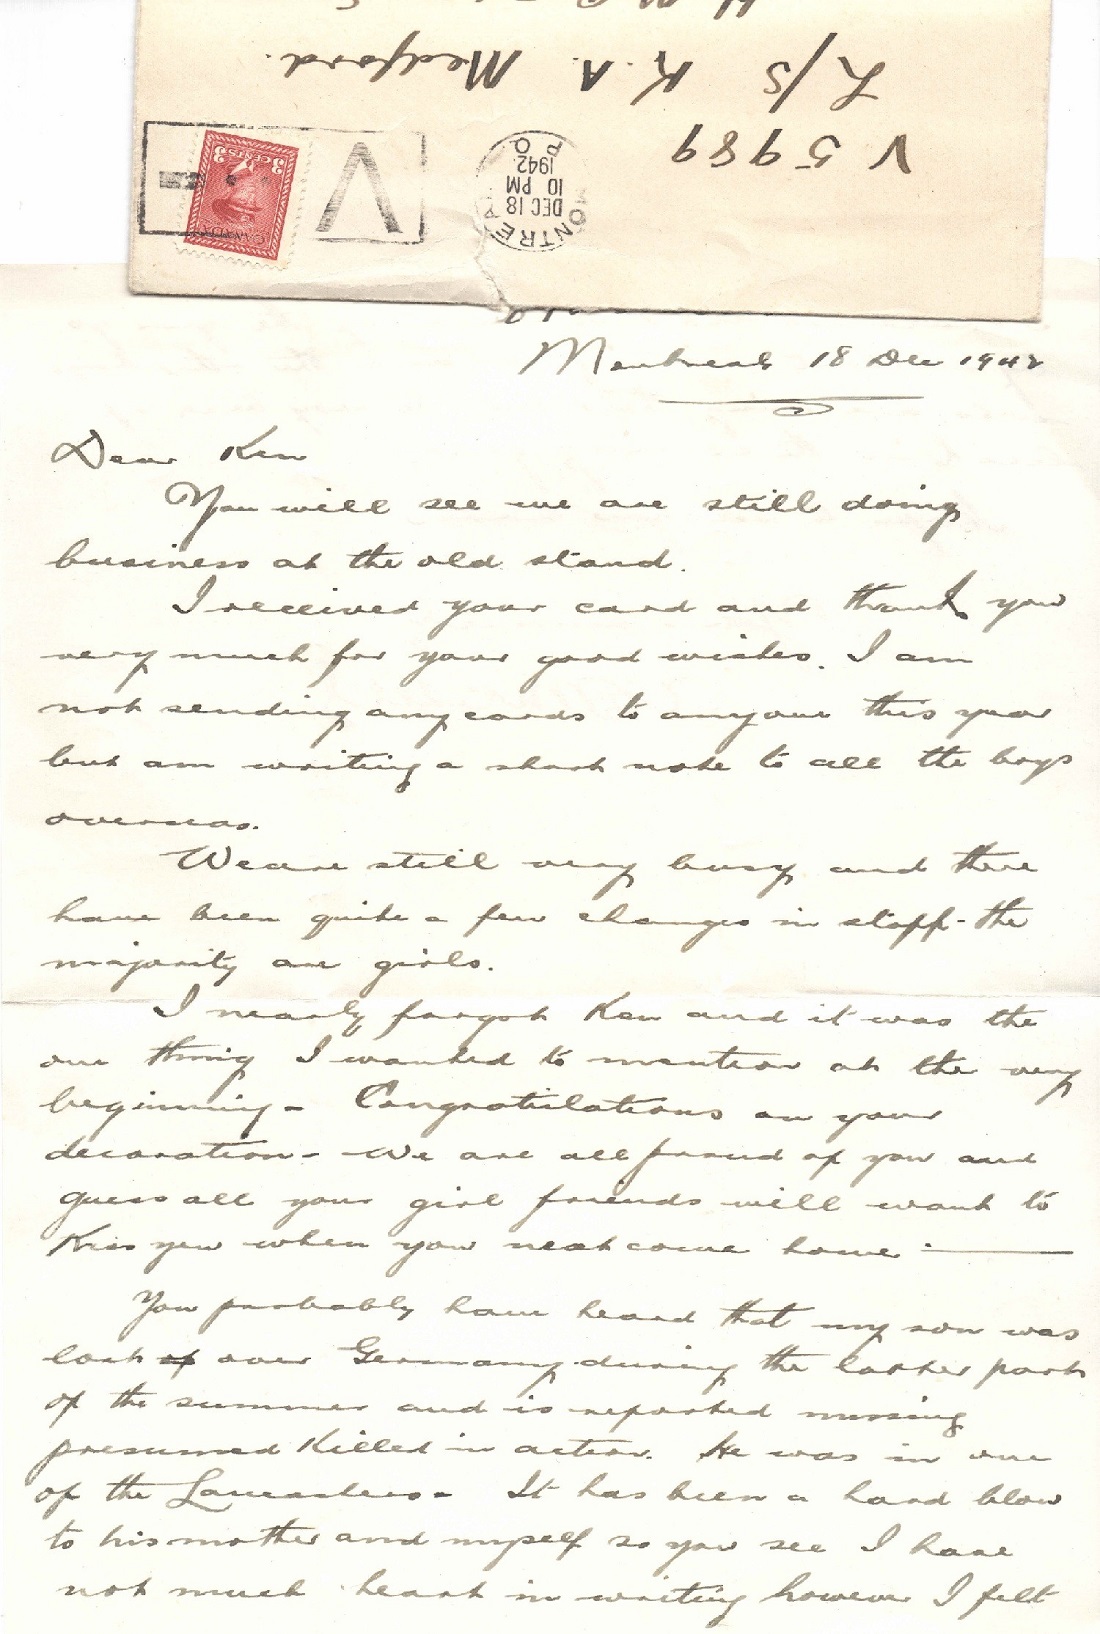 V 5989
L/S K. A. Medford.
H M C S
MONTREAL
P.Q.
DEC 18
10 PM
1942
V
CANADA
3 CENTS 3
Montreal 18 Dec 1942
Dear Ken
You will see we are still doing
business at the old stand.
I received your card and thank you
very much for your good wishes. I am
not sending any cards to anyone this year
but am writing a short note to all the boys
overseas.
We are still very busy and there
have been quite a few changes in staff - the
majority are girls.
I nearly forgot Ken and it was the
one thing I wanted to mention at the very
beginning - Congratulations on your
decoration - We are all proud of you and
guess all your girl friends will want to
Kiss you when you next come home -
You probably have heard that my son was
lost of over Germany during the latter part
of the summer and is reported missing
presumed Killed in action. He was in one
of the Lancasters - It has been a hard blow
to his mother and myself so you see I have
not much heart in writing however I felt